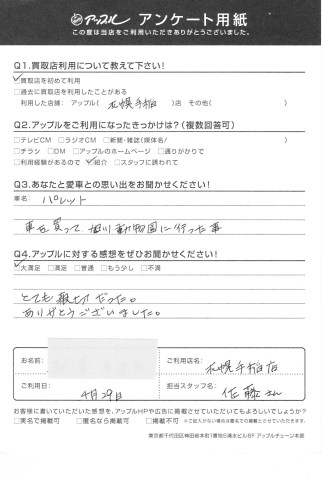 アップル アンケート用紙
この度は当店をご利用いただきありがとうございました。
Q1.買取店利用について教えて下さい!
☑買取店を初めて利用
□過去に買取店を利用したことがある
利用した店舗: アップル( 札幌手稲 )店 その他( )
Q2.アップルをご利用になったきっかけは?(複数回答可)
□テレビCM □ラジオCM □新聞・雑誌(媒体名/ )
□チラシ □DM □アップルのホームページ □通りがかりで
□利用経験があるので ☑紹介 □スタッフに誘われて
Q3.あなたと愛車との思い出をお聞かせください!
車名: パレット
車を買って 旭川動物園に行った事
Q4.アップルに対する感想をぜひお聞かせください!
☑大満足 □満足 □普通 □もう少し □不満
とても親切だった。
ありがとうございました。
お名前: ご利用店名: 札幌手稲店
ご利用日: 4月29日 担当スタッフ名: 佐藤さん
お客様に書いていただいた感想を、アップルHPや広告に掲載させていただいてもよろしいでしょうか?
□実名で掲載可 □匿名なら掲載可 □掲載不可 ※ご記入がない場合は匿名での掲載とさせていただきます。
東京都千代田区神田岩本町1番地5清水ビル6F アップルチェーン本部